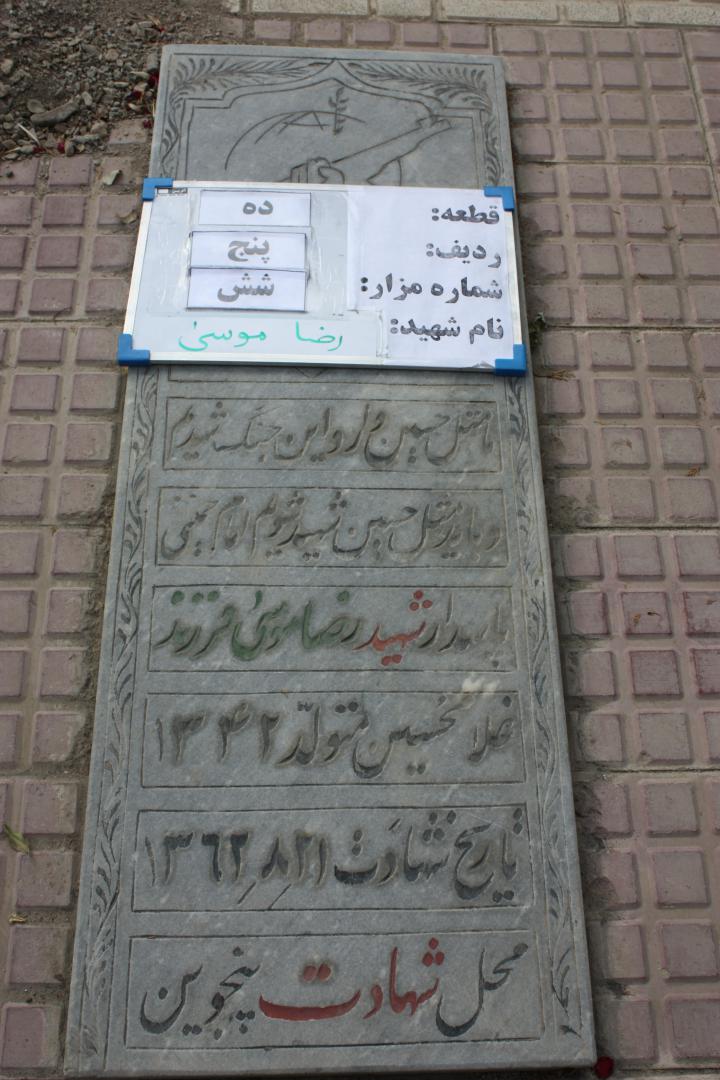 قطعه: ده
ردیف: پنج
شماره مزار: شش
نام شهید: رضا موسی
حسین وارد این جنگ شدیم
و باید مثل حسین شهید شویم امام خمینی
پاسدار شهید رضا موسی فرزند
غلامحسین متولد ۱۳۴۲
تاریخ شهادت ۱۳۶۲٫۸٫۲۱
محل شهادت پنجوین